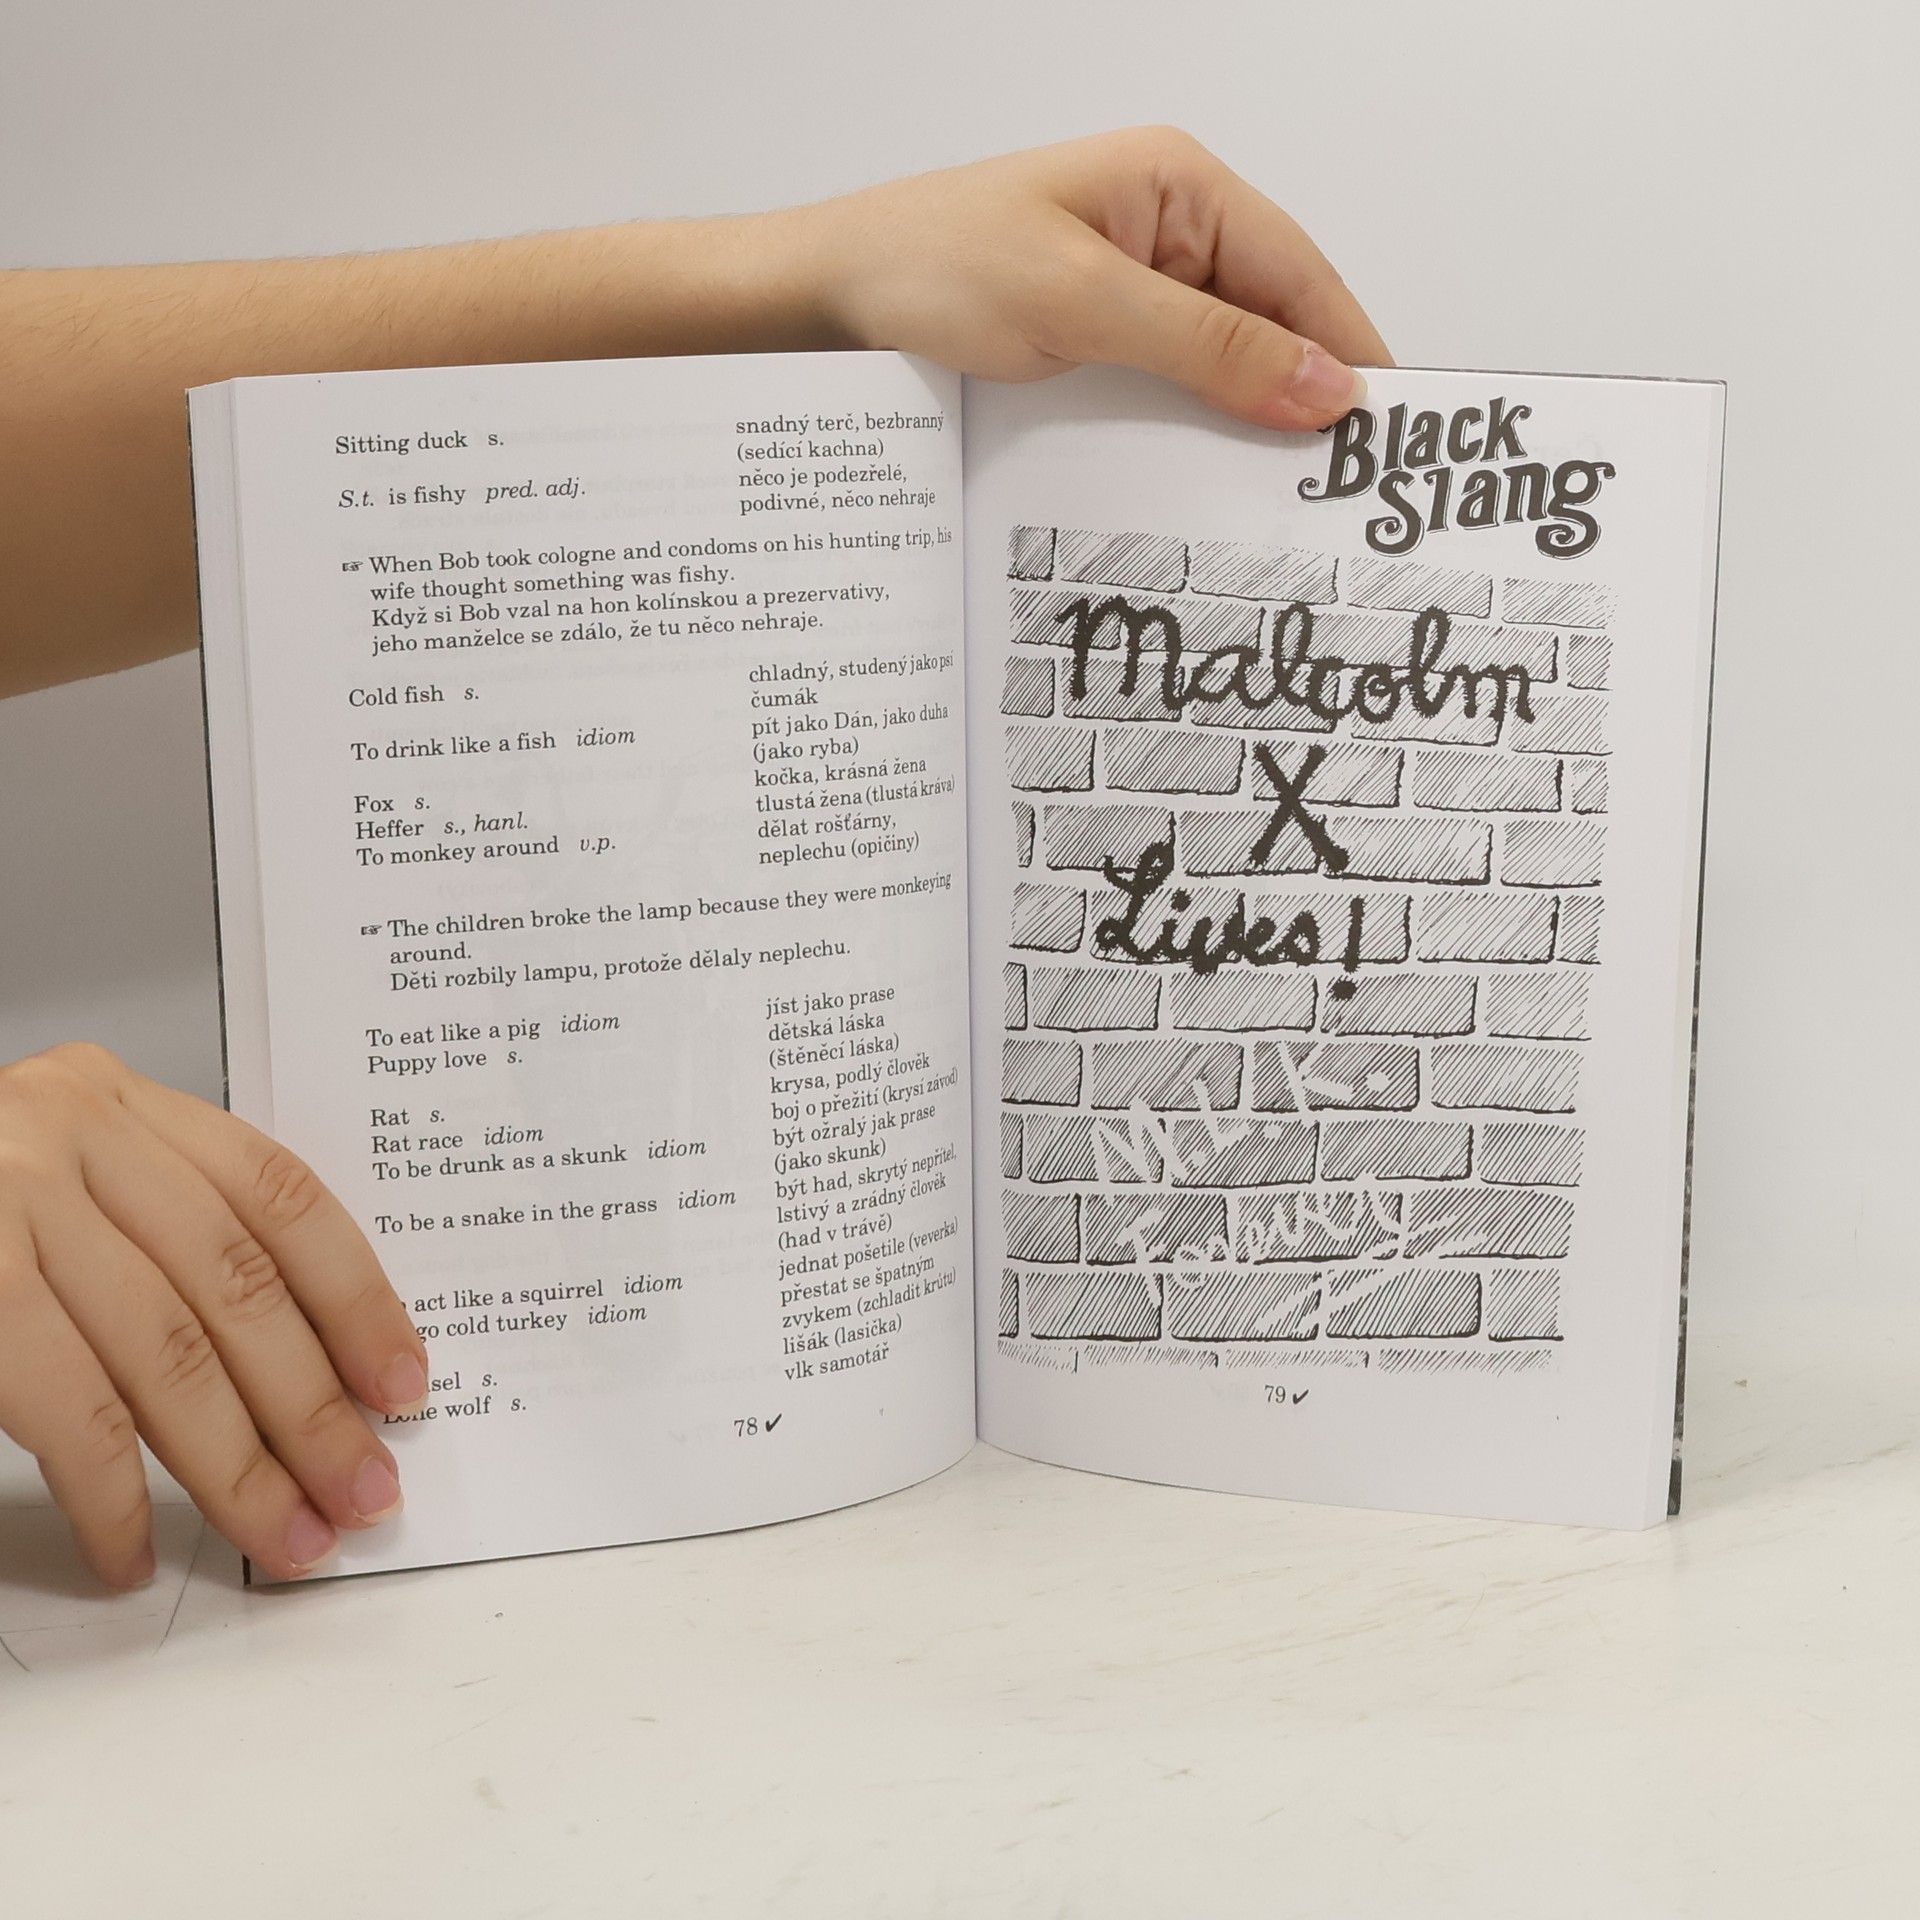 Sitting duck s. snadný terč, bezbranný
(sedící kachna)
S.t. is fishy pred. adj. něco je podezřelé,
podivné, něco nehraje
☞ When Bob took cologne and condoms on his hunting trip, his
wife thought something was fishy.
Když si Bob vzal na hon kolínskou a prezervativy,
jeho manželce se zdálo, že tu něco nehraje.
Cold fish s. chladný, studený jako psí
čumák
To drink like a fish idiom pít jako Dán, jako duha
(jako ryba)
Fox s. kočka, krásná žena
Heffer s., hanl. tlustá žena (tlustá kráva)
To monkey around v.p. dělat rošťárny,
neplechu (opičiny)
☞ The children broke the lamp because they were monkeying
around.
Děti rozbily lampu, protože dělaly neplechu.
To eat like a pig idiom jíst jako prase
Puppy love s. dětská láska
(štěněcí láska)
Rat s. krysa, podlý člověk
Rat race idiom boj o přežití (krysí závod)
To be drunk as a skunk idiom být ožralý jak prase
(jako skunk)
To be a snake in the grass idiom být had, skrytý nepřítel,
lstivý a zrádný člověk
(had v trávě)
act like a squirrel idiom jednat pošetile (veverka)
go cold turkey idiom přestat se špatným
zvykem (zchladit krůtu)
s. lišák (lasička)
Lone wolf s. vlk samotář
78 ✓
Black
Slang
Malcolm
X
Lives!
79 ✓